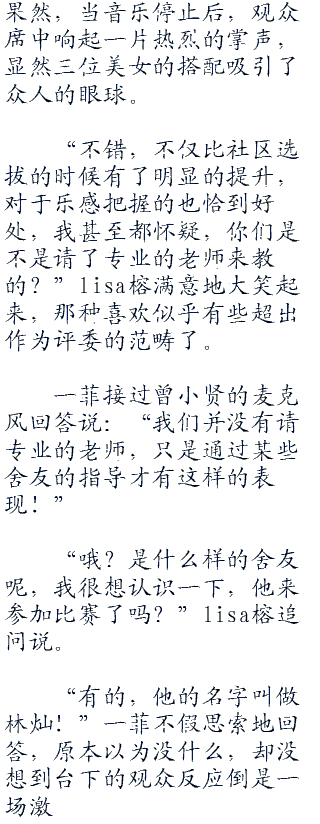 果然，当音乐停止后，观众
席中响起一片热烈的掌声，
显然三位美女的搭配吸引了
众人的眼球。
“不错，不仅比社区选
拔的时候有了明显的提升，
对于乐感把握的也恰到好
处，我甚至都怀疑，你们是
不是请了专业的老师来教
的？”lisa榕满意地大笑起
来，那种喜欢似乎有些超出
作为评委的范畴了。
一菲接过曾小贤的麦克
风回答说：“我们并没有请
专业的老师，只是通过某些
舍友的指导才有这样的表
现！”
“哦？是什么样的舍友
呢，我很想认识一下，他来
参加比赛了吗？”lisa榕追
问说。
“有的，他的名字叫做
林灿！”一菲不假思索地回
答，原本以为没什么，却没
想到台下的观众反应倒是一
场激